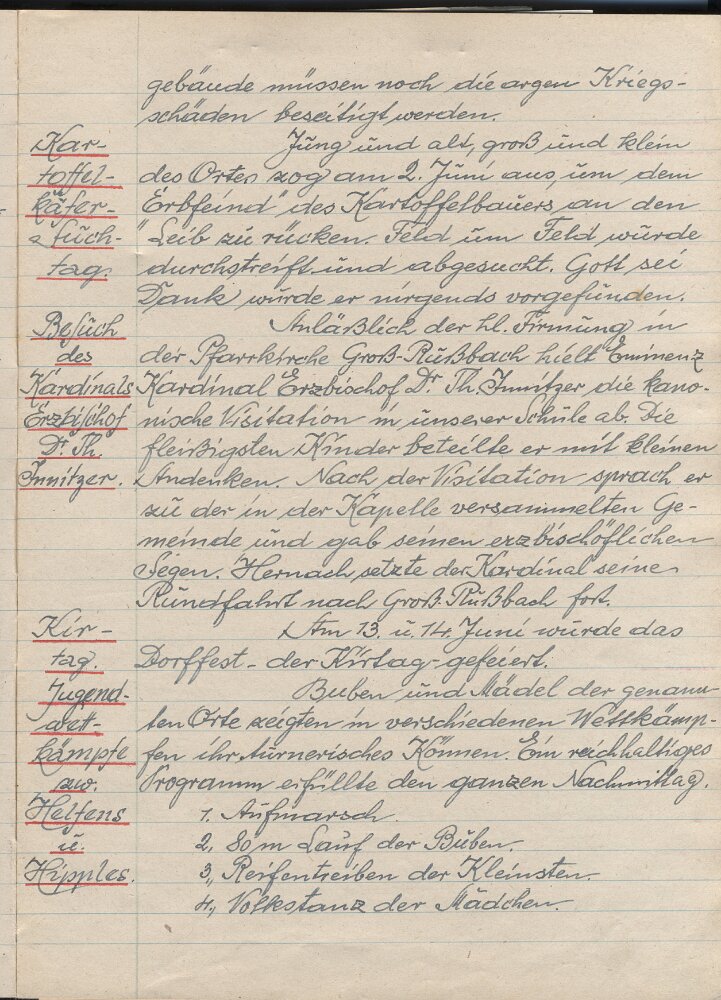 gebäude müssen noch die argen Kriegs-
schäden beseitigt werden.
Kar-
toffel-
käfer-
such-
tag.
Jung und alt, groß und klein
des Ortes zog am 2. Juni aus, um dem
"Erbfeind" des Kartoffelbauers an den
Leib zu rücken. Feld um Feld wurde
durchstreift und abgesucht. Gott sei
Dank wurde er nirgends vorgefunden.
Besuch
des
Kardinals
Erzbischof
Dr. Th.
Innitzer.
Anläßlich der hl. Firmung in
der Pfarrkirche Groß-Rußbach hielt Eminenz
Kardinal Erzbischof Dr. Th. Innitzer die kano-
nische Visitation in unserer Schule ab. Die
fleißigsten Kinder beteilte er mit kleinen
Andenken. Nach der Visitation sprach er
zu der in der Kapelle versammelten Ge-
meinde und gab seinen erzbischöflichen
Segen. Hernach setzte der Kardinal seine
Rundfahrt nach Groß-Rußbach fort.
Kir-
tag.
Am 13. u. 14. Juni wurde das
Dorffest - der Kirtag - gefeiert.
Jugend-
wett-
kämpfe
zw.
Helfens
u.
Hipples.
Buben und Mädel der genann-
ten Orte zeigten in verschiedenen Wettkämp-
fen ihr turnerisches Können. Ein reichhaltiges
Programm erfüllte den ganzen Nachmittag.
1., Aufmarsch.
2., 80 m Lauf der Buben.
3., Reifentreiben der Kleinsten.
4., Volkstanz der Mädchen.